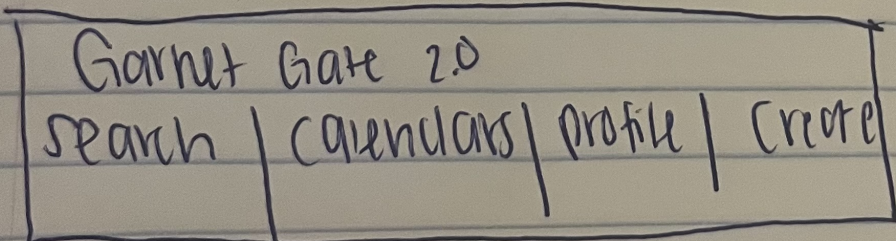 Garnet Gate 2.0
search | calendars | profile | create